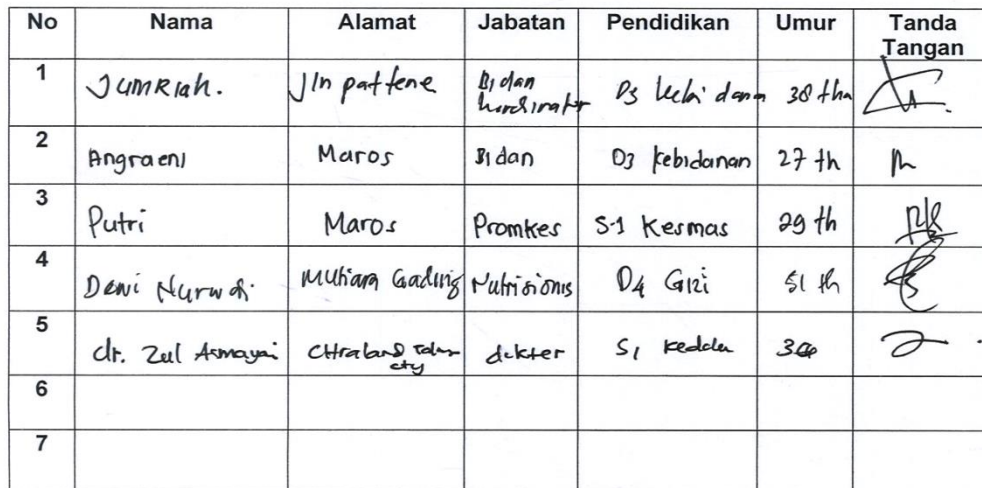 No Nama Alamat Jabatan Pendidikan Umur Tanda Tangan
1 Jumriah. Jln pattene Bidan kordinator D3 kebidanan 38 thn
2 Angraeni Maros Bidan D3 kebidanan 27 th
3 Putri Maros Promkes S-1 Kesmas 29 th
4 Dewi Mutiara Gading Nutrisionis D4 Gizi 51 th
5 dr. Zul Citraland city dokter S1
6
7